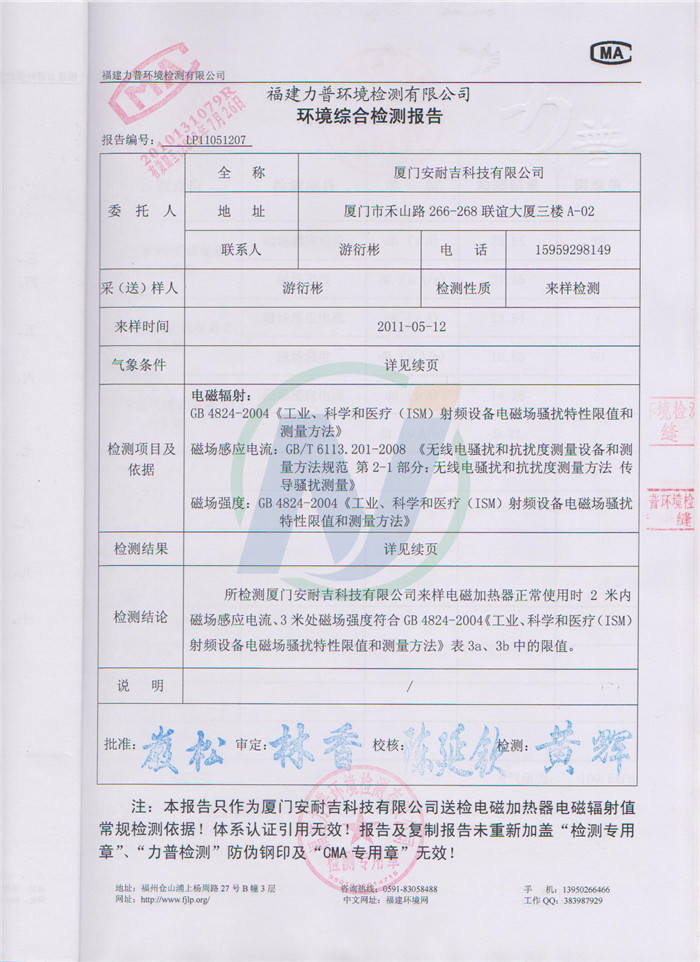 MA
福建力普环境检测有限公司
福建力普环境检测有限公司
环境综合检测报告
报告编号: LP11051207
MA
2010131079R
委托人
全称 厦门安耐吉科技有限公司
地址 厦门市禾山路 266-268 联谊大厦三楼 A-02
联系人 游衍彬 电话 15959298149
采(送)样人 游衍彬 检测性质 来样检测
来样时间 2011-05-12
气象条件 详见续页
检测项目及
依据
电磁辐射:
GB 4824-2004《工业、科学和医疗(ISM)射频设备电磁场骚扰特性限值和
测量方法》
磁场感应电流: GB/T 6113.201-2008 《无线电骚扰和抗扰度测量设备和测
量方法规范 第 2-1 部分: 无线电骚扰和抗扰度测量方法 传
导骚扰测量》
磁场强度: GB 4824-2004《工业、科学和医疗(ISM)射频设备电磁场骚扰
特性限值和测量方法》
检测结果 详见续页
检测结论
所检测厦门安耐吉科技有限公司来样电磁加热器正常使用时 2 米内
磁场感应电流、3 米处磁场强度符合 GB 4824-2004《工业、科学和医疗(ISM)
射频设备电磁场骚扰特性限值和测量方法》表 3a、3b 中的限值。
说明 /
批准: 审定: 林香 校核: 陈延钦 检测: 黄辉
注: 本报告只作为厦门安耐吉科技有限公司送检电磁加热器电磁辐射值
常规检测依据! 体系认证引用无效! 报告及复制报告未重新加盖“检测专用
章”、“力普检测”防伪钢印及“CMA 专用章”无效!
检测专用章
地址: 福州仓山浦上杨周路 27 号 B 幢 3 层 咨询热线: 0591-83058488 手机: 13950266466
网址: http://www.fjlp.org/ 中文网址: 福建环境网 工作 QQ: 383987929
环境检
缝
普环境检
缝
力普